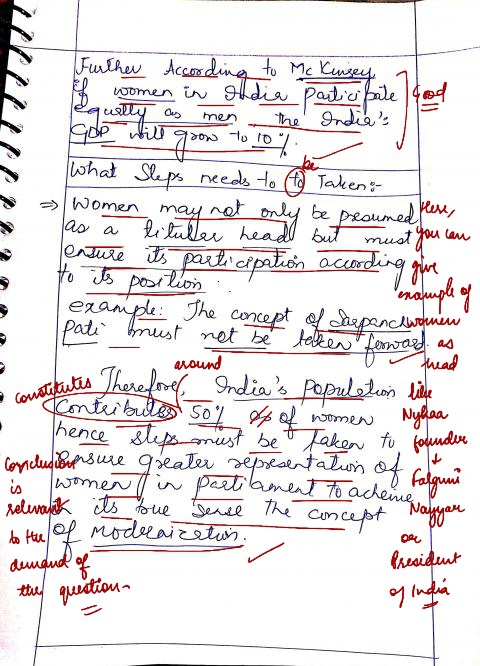 Further According to Mc Kinsey
If women in India participate
Equally as men the India's
GDP will grow to 10%.
Good
be
What Steps needs to to Taken:-
⇒ Women may not only be presumed
as a titular head but must
ensure its participation according
to its position.
example: The concept of Sarpanch
Pati must not be taken forward
Here,
you can
give
example of
women
as
head
like
Nykaa
founder
+
Falguni
Nayyar
or
President
of India
around
Therefore, India's population
constitutes
contributes 50% of women
hence steps must be taken to
ensure greater representation of
women in Parliament to achieve
in its true sense the concept
of modernization.
Conclusion
is
relevant
to the
demand of
the question